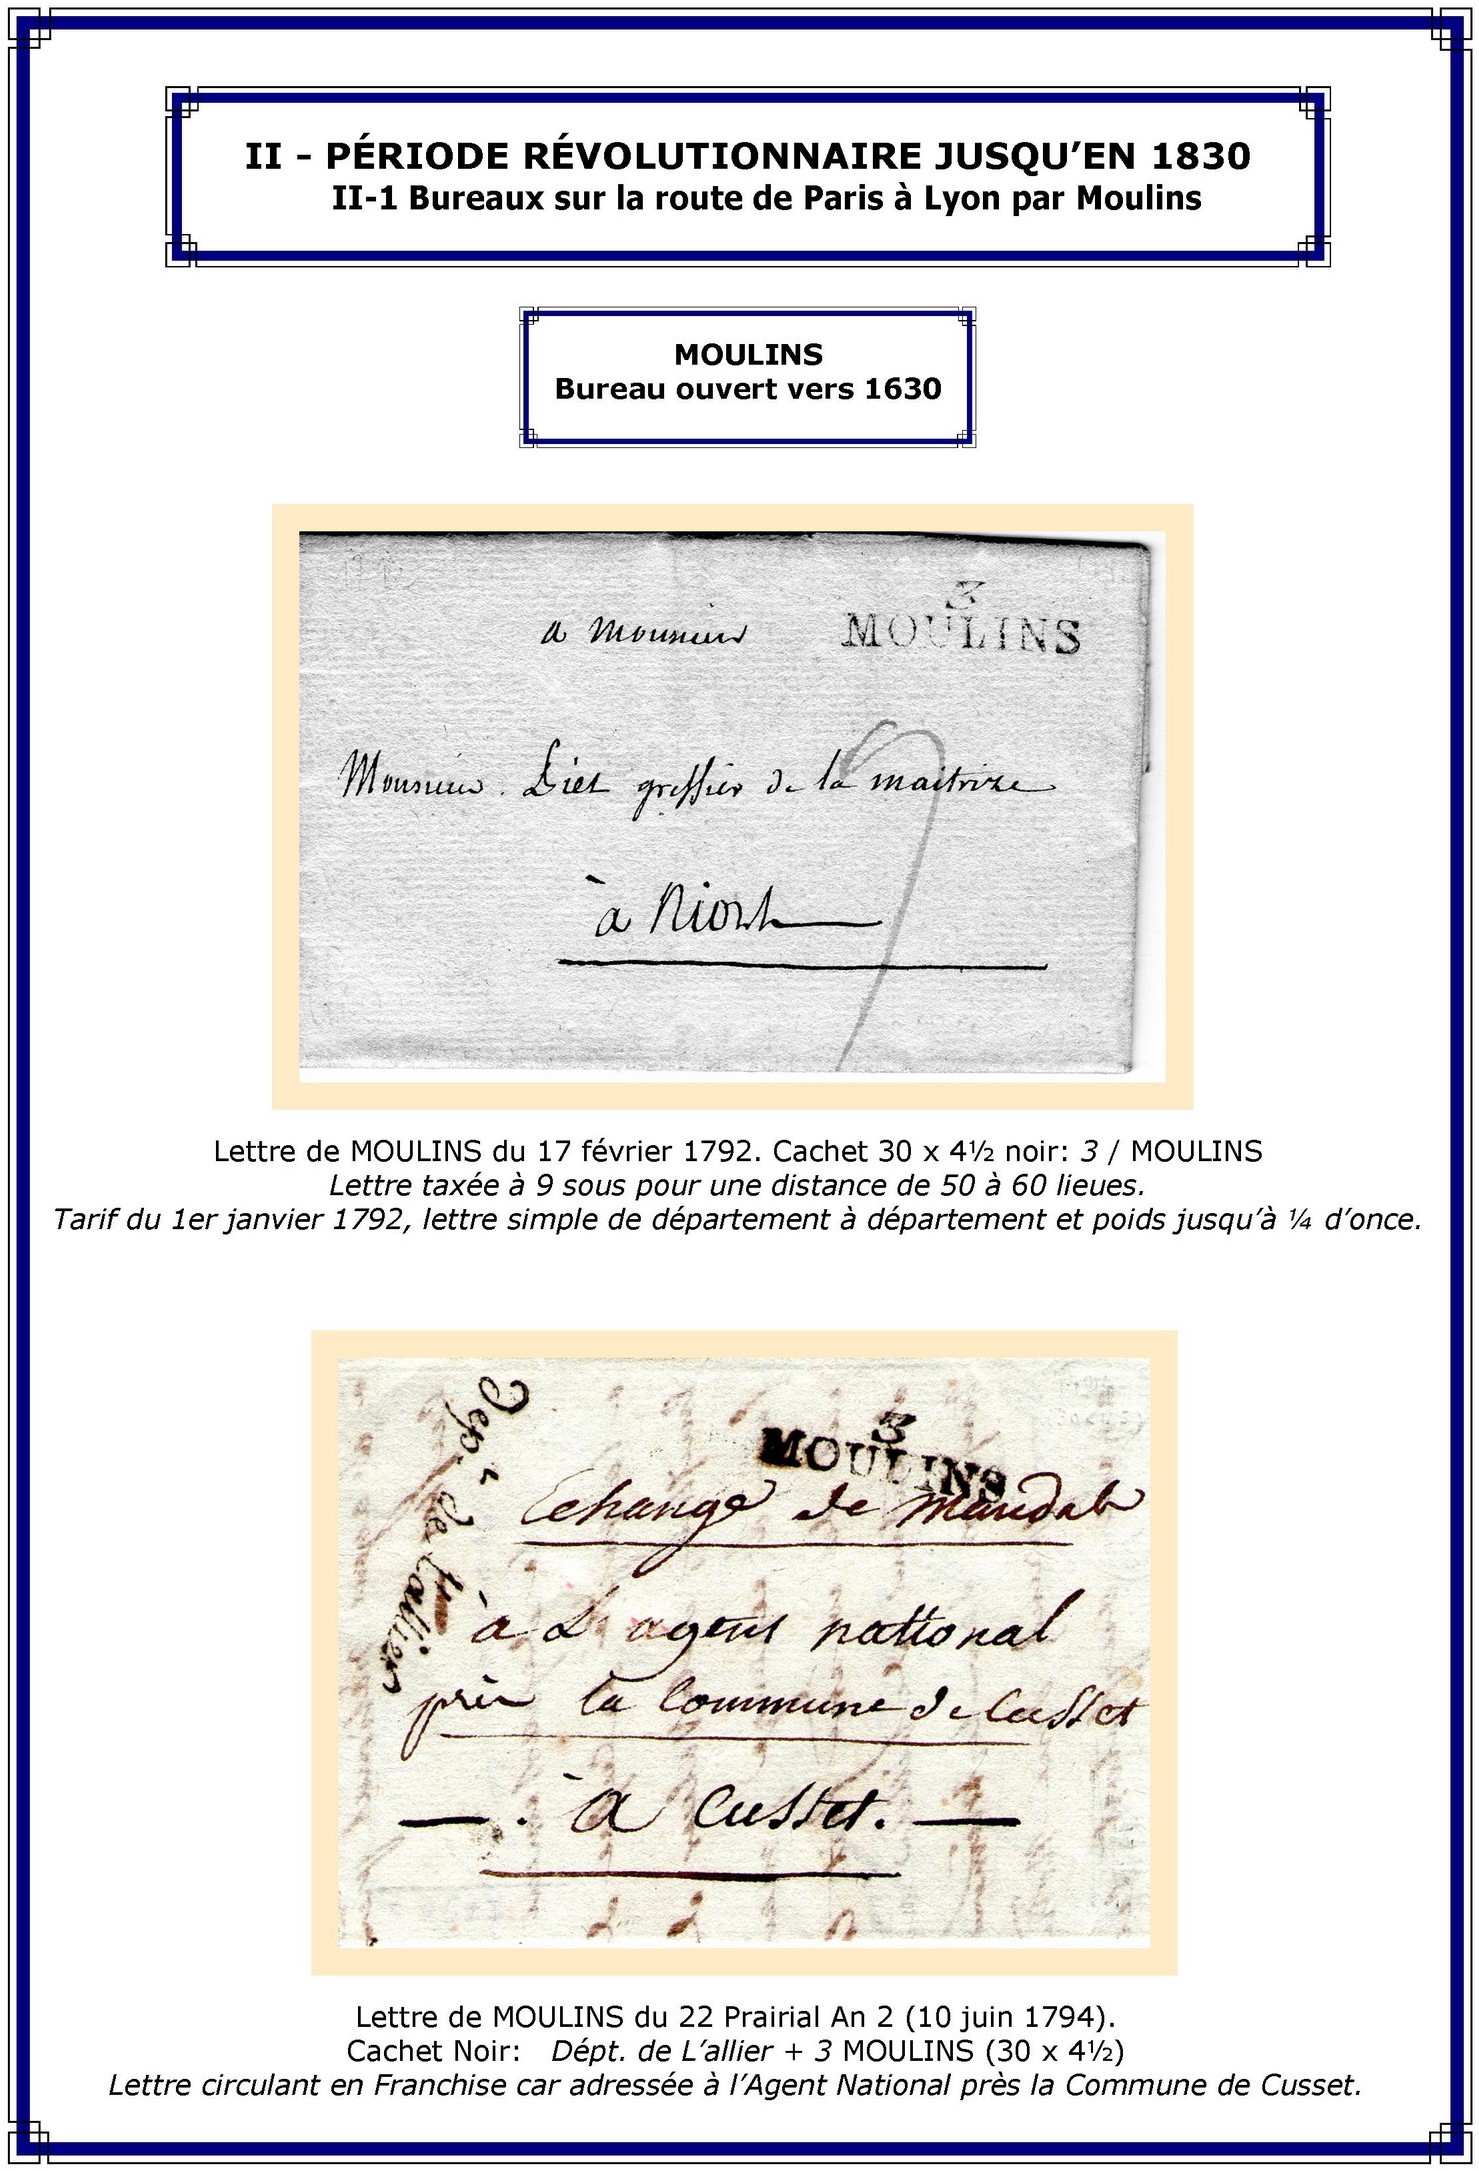 II - PÉRIODE RÉVOLUTIONNAIRE JUSQU'EN 1830
II-1 Bureaux sur la route de Paris à Lyon par Moulins
MOULINS
Bureau ouvert vers 1630
3
a Monsieur MOULINS
Monsieur Liet greffier de la maitrize
à Niort
Lettre de MOULINS du 17 février 1792. Cachet 30 x 4½ noir: 3 / MOULINS
Lettre taxée à 9 sous pour une distance de 50 à 60 lieues.
Tarif du 1er janvier 1792, lettre simple de département à département et poids jusqu'à ¼ d'once.
Dep.t de Lallier
3
MOULINS
Echange de Mandat
à L agent national
près la Commune de Cusset
à Cusset.
Lettre de MOULINS du 22 Prairial An 2 (10 juin 1794).
Cachet Noir: Dépt. de L'allier + 3 MOULINS (30 x 4½)
Lettre circulant en Franchise car adressée à l'Agent National près la Commune de Cusset.